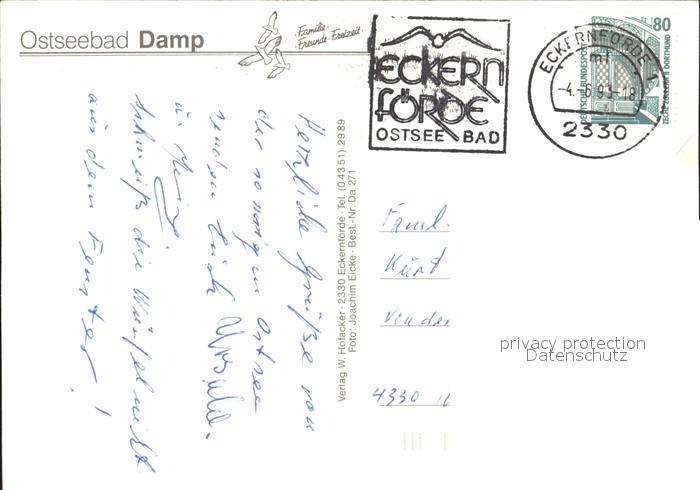 Ostseebad Damp
Familie·
Freunde·Freizeit·
ECKERN
FÖRDE
OSTSEE BAD
ECKERNFÖRDE 1
mf
-4.-6.93-18
2330
80
DEUTSCHE BUNDESPOST
ZECHE ZOLLERN II DORTMUND
Herzliche Grüße von
der sonnigen Ostsee
senden Euch Ursula.
u. Heinz.
Schmeiß die Würfel nicht
aus dem Fenster!
Verlag W. Hofacker · 2330 Eckernförde · Tel. (0 43 51) 29 89
Foto: Joachim Eicke · Best.-Nr. Da 271
Faml.
Kurt
von der
4330
privacy protection
Datenschutz